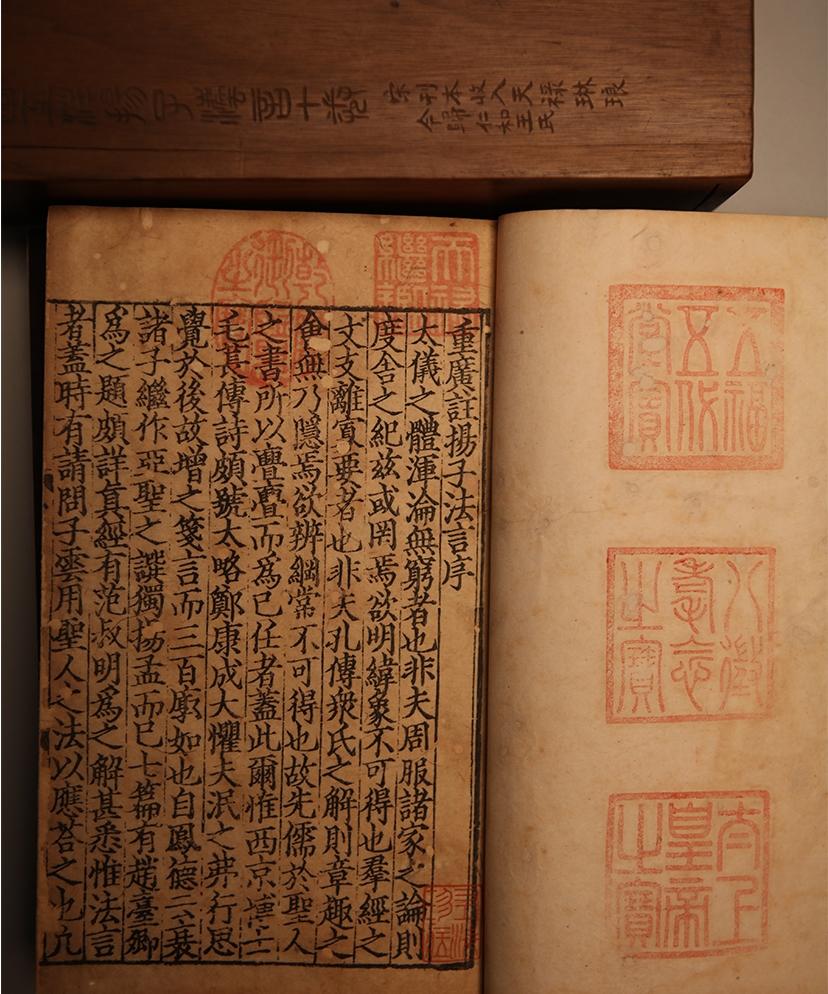 互註揚子灋言十卷
宋刊本收入天禄琳琅
今歸仁和王氏
五福五代堂寶
八徵耄念之寶
太上皇帝之寶
天祿繼鑑
乾隆御覽之寶
重廣註揚子法言序
太儀之體渾淪無窮者也非夫周服諸家之論則
度舍之紀兹或罔焉欲明緯象不可得也羣經之
文支離寘要者也非夫孔傳衆氏之解則章趣之
會無乃隱焉欲辨綱常不可得也故先儒於聖人
之書所以亹亹而爲己任者蓋此爾惟西京博士
毛萇傳詩頗號太略鄭康成大懼夫泯之弗行思
覺於後故增之箋言而三百廓如也自鳳德云衰
諸子繼作亞聖之譔獨揚孟而已七篇有趙臺卿
爲之題頗詳真經有范叔明爲之解甚悉惟法言
者蓋時有請問子雲用聖人之法以應荅之也凢